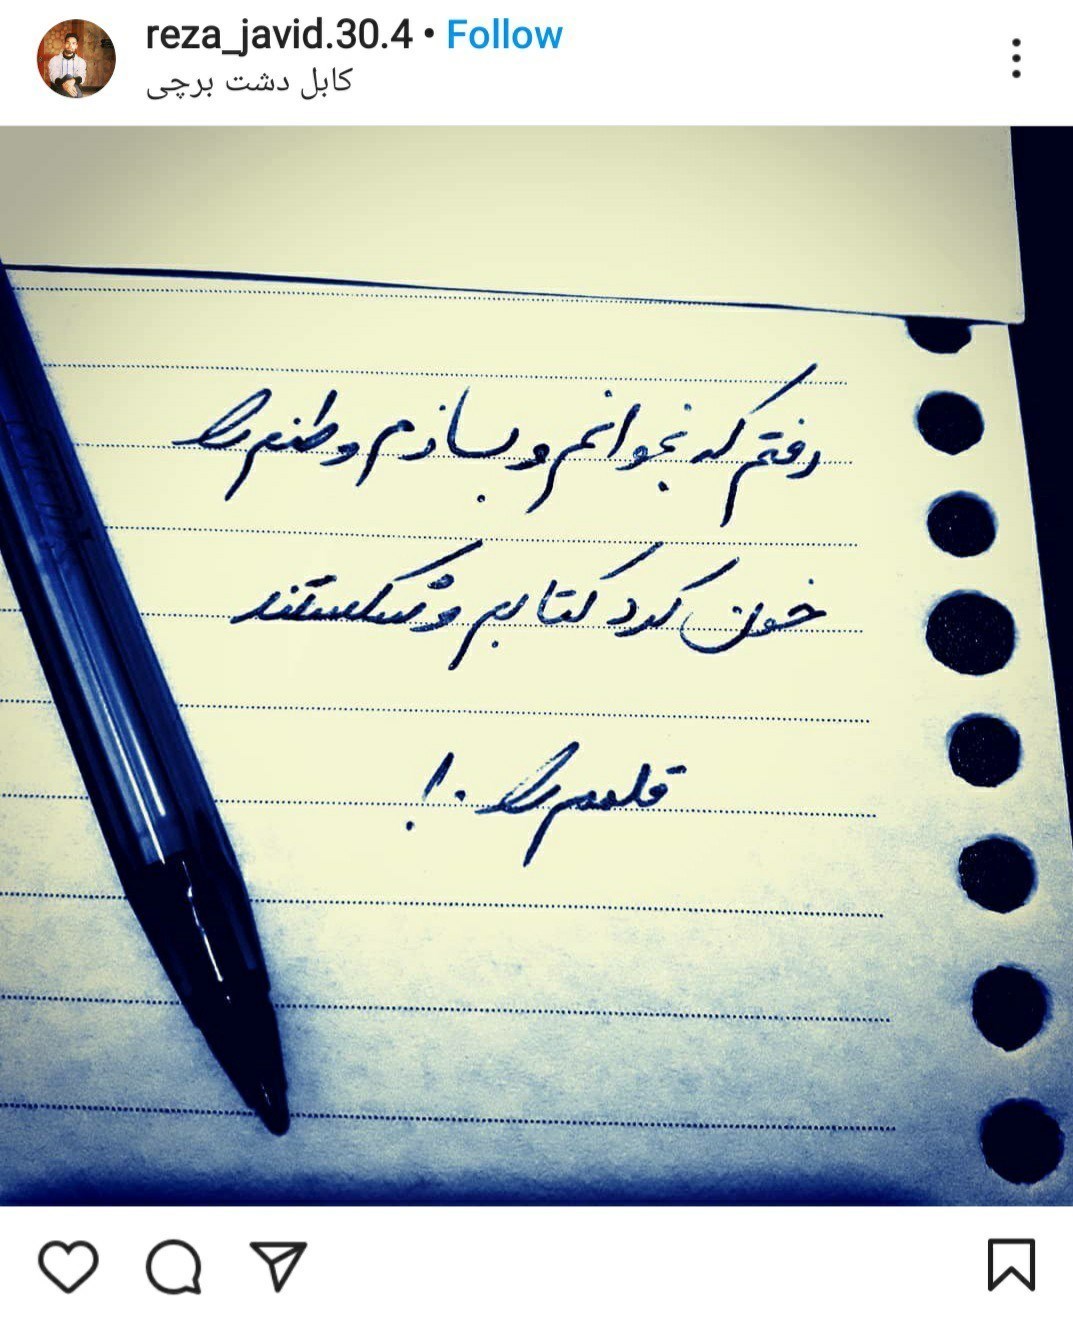 reza_javid.30.4 • Follow
کابل دشت برچی
رفتم که بخوانم و بسازم وطنم را
خون کرد کتابم و شکستند
قلمم را . !